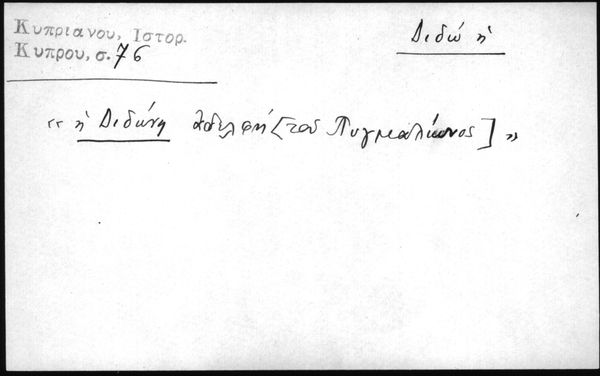 Κυπριανου, Ιστορ.
Κυπρου, σ. 76
Διδώ ἡ
« ἡ Διδώνη ἀδελφή [τοῦ Πυγμαλίωνος] »